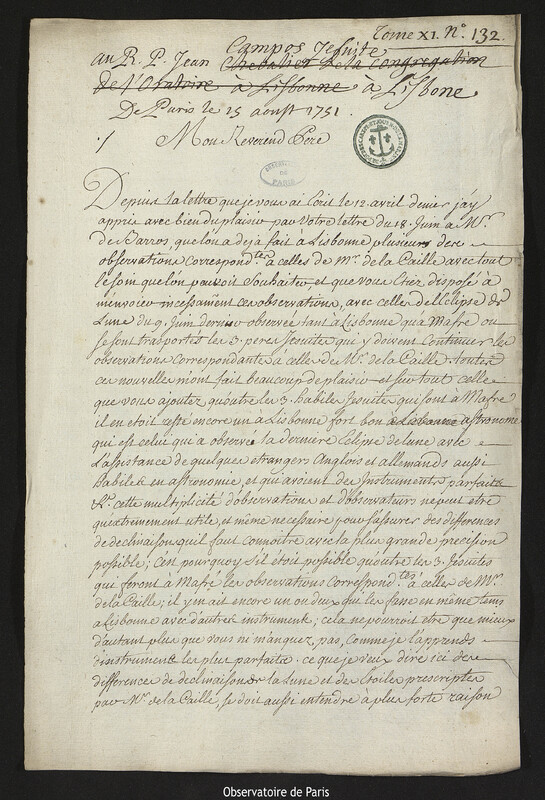 Tome XI. N.º 132.
au R. P. Jean Campos Jesuite
Chevalier de la Congregation
de l'Oratoire à Lisbonne à Lisbone
De Paris le 25 aoust 1751.
Mon Reverend Pere
OBSERVATOIRE DE PARIS
Depuis la lettre que je vous ai écrit le 12. avril dernier j'ay
appris avec bien du plaisir par votre lettre du 18. Juin a Mr.
de Barros, que l'on a deja fait à Lisbonne plusieurs des
observations correspond.tes à celles de Mr. de la Caille avec tout
le soin que l'on pouvoit Souhaiter, et que vous etiez disposé à
m'envoier incessament ces observations, avec celles de l'Eclipse de
Lune du 9. Juin dernier observée tant à Lisbonne qu'a Mafre ou
se sont transportés les 3. peres Jesuites qui y doivent Continuer les
observations Correspondante à celles de Mr. de la Caille. toutes
ces nouvelles m'ont fait beaucoup de plaisir et sur tout celle
que vous ajoutez, qu'outre les 3. habiles Jesuites qui sont à Mafre
il en etoit resté encore un à Lisbonne fort bon astronome
qui est celui qui a observé la derniere Eclipse de lune avec
L'assistance de quelques etrangers Anglois et allemands aussi
habiles en astronomie, et qui avoient des Instruments parfaits
cette multiplicité d'observations et d'observateurs ne peut etre
qu'extremement utile, et même necessaire pour s'assurer des differences
de declinaisons qu'il faut connoitre avec la plus grande precision
possible; c'est pourquoy s'il etoit possible qu'outre les 3. Jesuites
qui feront à Mafre les observations Correspond.tes à celles de Mr.
de la Caille; il y en ait encore un ou deux qui les fasse en même tems
a Lisbonne avec d'autres instruments; cela ne pourroit etre que mieux
d'autant plus que vous ni manquez pas, comme je l'apprends
d'instruments les plus parfaits. ce que je veux dire ici des
difference de declinaison de la Lune et des Etoiles prescrites
par Mr. de la Caille, se doit aussi entendre à plus forte raison
Observatoire de Paris